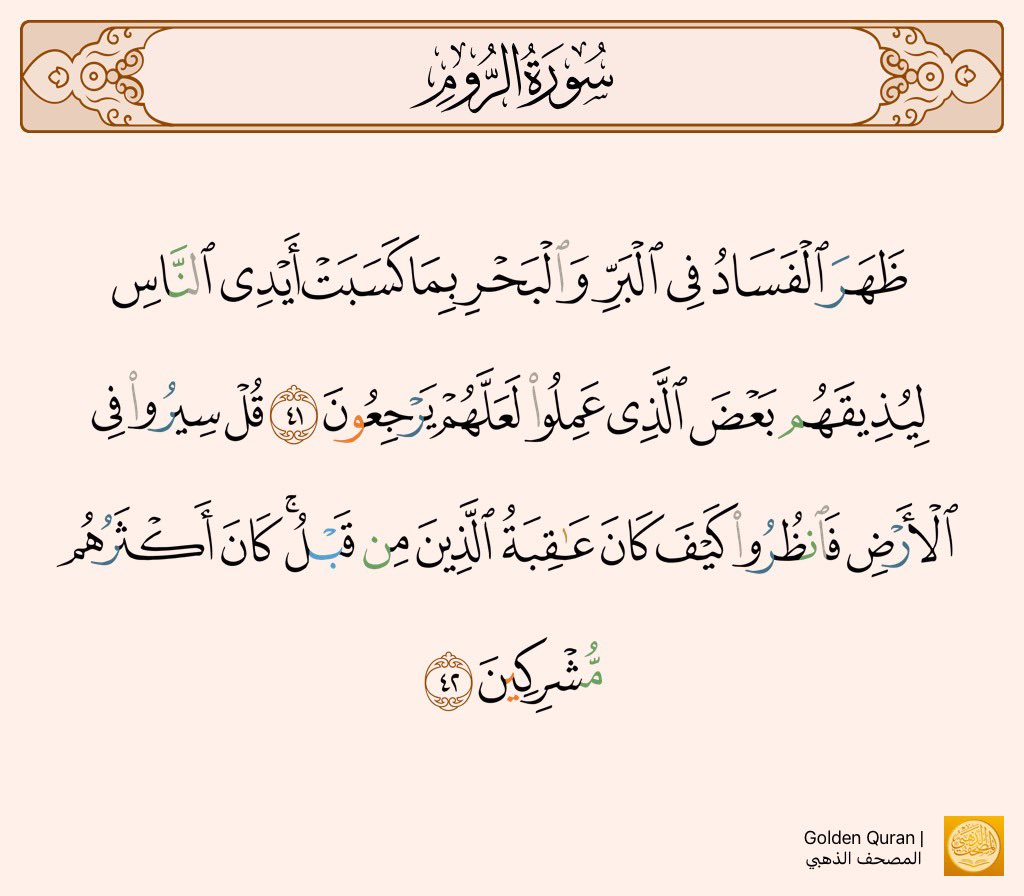 سُورَةُ الرُّومِ
ظَهَرَ ٱلْفَسَادُ فِى ٱلْبَرِّ وَٱلْبَحْرِ بِمَا كَسَبَتْ أَيْدِى ٱلنَّاسِ
لِيُذِيقَهُم بَعْضَ ٱلَّذِى عَمِلُوا۟ لَعَلَّهُمْ يَرْجِعُونَ ٤١ قُلْ سِيرُوا۟ فِى
ٱلْأَرْضِ فَٱنظُرُوا۟ كَيْفَ كَانَ عَـٰقِبَةُ ٱلَّذِينَ مِن قَبْلُ ۚ كَانَ أَكْثَرُهُم
مُّشْرِكِينَ ٤٢
Golden Quran |
المصحف الذهبي
المصحف الذهبي